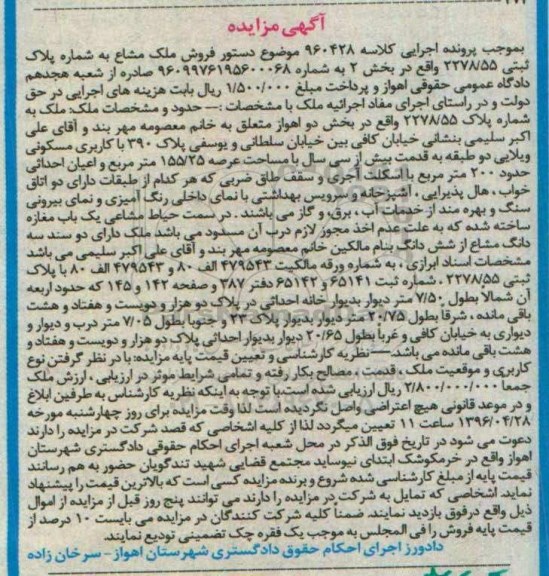 آگهی مزایده
بموجب پرونده اجرایی کلاسه ۹۶۰۴۲۸ موضوع دستور فروش ملک مشاع به شماره پلاک
ثبتی ۲۲۷۸/۵۵ واقع در بخش ۲ به شماره ۹۶۰۹۹۷۶۱۹۵۶۰۰۰۶۸ صادره از شعبه هجدهم
دادگاه عمومی حقوقی اهواز و پرداخت مبلغ ۱/۵۰۰/۰۰۰ ریال بابت هزینه های اجرایی در حق
دولت و در راستای اجرای مفاد اجرائیه ملک با مشخصات :— حدود و مشخصات ملک: ملک به
شماره پلاک ۲۲۷۸/۵۵ واقع در بخش دو اهواز متعلق به خانم معصومه مهر بند و آقای علی
اکبر سلیمی بنشانی خیابان کافی بین خیابان سلطانی و یوسفی پلاک ۳۹۰ با کاربری مسکونی
ویلایی دو طبقه به قدمت بیش از سی سال با مساحت عرصه ۱۵۵/۲۵ متر مربع و اعیان احداثی
حدود ۲۰۰ متر مربع با اسکلت آجری و سقف طاق ضربی که هر کدام از طبقات دارای دو اتاق
خواب ، هال پذیرایی ، آشپزخانه و سرویس بهداشتی با نمای داخلی رنگ آمیزی و نمای بیرونی
سنگ و بهره مند از خدمات آب ، برق، و گاز می باشند . در سمت حیاط مشاعی یک باب مغازه
ساخته شده که به علت عدم اخذ مجوز لازم درب آن مسدود می باشد ملک دارای دو سند سه
دانگ مشاع از شش دانگ بنام مالکین خانم معصومه مهر بند و آقای علی اکبر سلیمی می باشد
مشخصات اسناد ابرازی ، به شماره ورقه مالکیت ۴۷۹۵۴۳ الف ۸۰ و ۴۷۹۵۴۳ الف ۸۰ با پلاک
ثبتی ۲۲۷۸/۵۵ ، شماره ثبت ۶۵۱۴۱ و ۶۵۱۴۲ دفتر ۳۸۷ و صفحه ۱۴۲ و ۱۴۵ که حدود اربعه
آن شمالا بطول ۷/۵۰ متر دیوار بدیوار خانه احداثی در پلاک دو هزار و دویست و هفتاد و هشت
باقی مانده ، شرقا بطول ۲۰/۷۵ متر دیوار بدیوار پلاک ۳۳ و جنوبا بطول ۷/۰۵ متر درب و دیوار و
دیواری به خیابان کافی و غربا بطول ۲۰/۶۵ دیوار بدیوار احداثی پلاک دو هزار و دویست و هفتاد و
هشت باقی مانده می باشد.—نظریه کارشناسی و تعیین قیمت پایه مزایده: با در نظر گرفتن نوع
کاربری و موقعیت ملک ، قدمت ، مصالح بکار رفته و تمامی شرایط موثر در ارزیابی ، ارزش ملک
جمعا ۲/۸۰۰/۰۰۰/۰۰۰ ریال ارزیابی شده است.با توجه به اینکه نظریه کارشناس به طرفین ابلاغ
و در موعد قانونی هیچ اعتراضی واصل نگردیده است لذا وقت مزایده برای روز چهارشنبه مورخه
۱۳۹۶/۰۴/۲۸ ساعت ۱۱ تعیین میگردد لذا از کلیه اشخاصی که قصد شرکت در مزایده را دارند
دعوت می شود در تاریخ فوق الذکر در محل شعبه اجرای احکام حقوقی دادگستری شهرستان
اهواز واقع در خرمکوشک ابتدای نیوساید مجتمع قضایی شهید تندگویان حضور به هم رسانند
قیمت پایه از مبلغ کارشناسی شده شروع و برنده مزایده کسی است که بالاترین قیمت را پیشنهاد
نماید. اشخاصی که تمایل به شرکت در مزایده را دارند می توانند پنج روز قبل از مزایده از اموال
ذیل واقع در فوق بازدید نمایند. ضمنا کلیه شرکت کنندگان در مزایده می بایست ۱۰ درصد از
قیمت پایه فروش را فی المجلس به موجب یک فقره چک تضمینی تودیع نمایند.
دادورز اجرای احکام حقوق دادگستری شهرستان اهواز - سرخان زاده